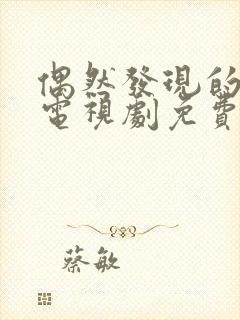 偶然發現的
電視劇免費
蔡敏